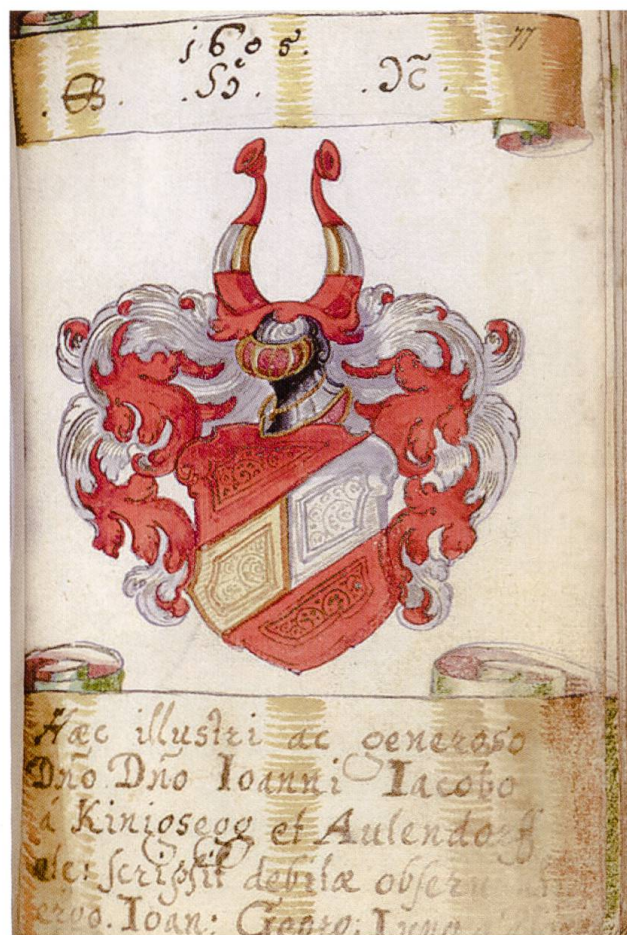 1605.
77
Hæc illustri ac generoso
Dño Dño Ioanni Iacobo
á Kinigsegg et Aulendorff
etc: scripsit debitæ
ergo. Ioan: Georg: